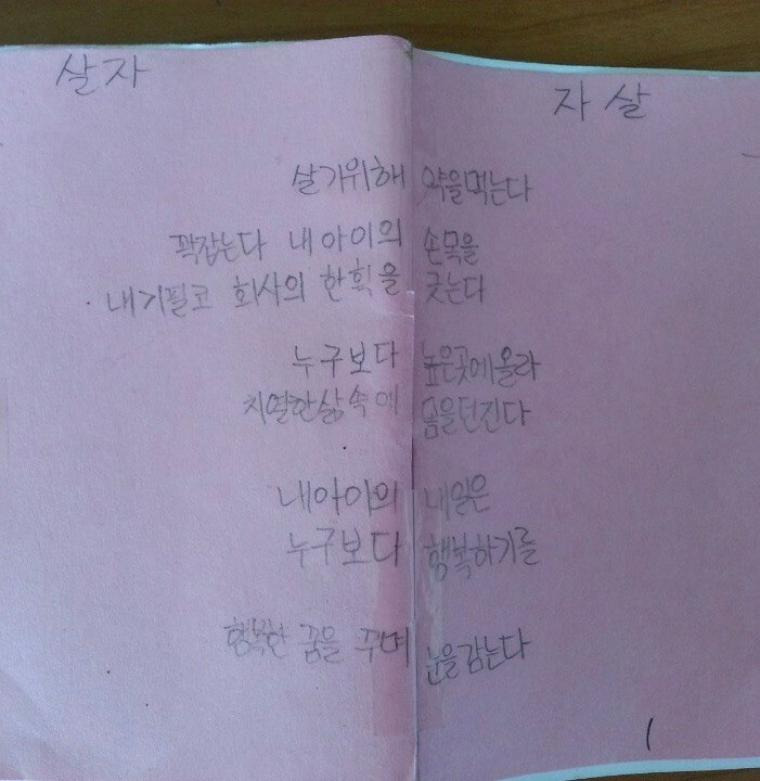 살자
자살
살기위해 약을먹는다
꽉잡는다 내아이의 손목을
내기필코 회사의 한획을 긋는다
누구보다 높은곳에올라
치열한삶속에 몸을던진다
내아이의 내일은
누구보다 행복하기를
행복한 꿈을 꾸며 눈을감는다